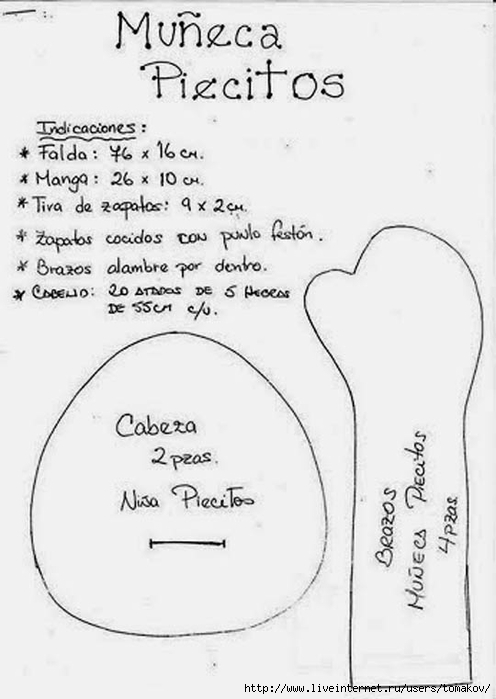 Muñeca
Piecitos
Indicaciones:
* Falda: 76 x 16 cm.
* Manga: 26 x 10 cm.
* Tira de zapatos: 9 x 2 cm.
* Zapatos cocidos con punto festón.
* Brazos alambre por dentro.
* CABELLO: 20 ATADOS DE 5 HEBRAS
DE 55CM c/u.
Cabeza
2 pzas.
Niña Piecitos
BRAZOS
MUÑECA Piecitos
4 pzas.
http://www.liveinternet.ru/users/tomakov/